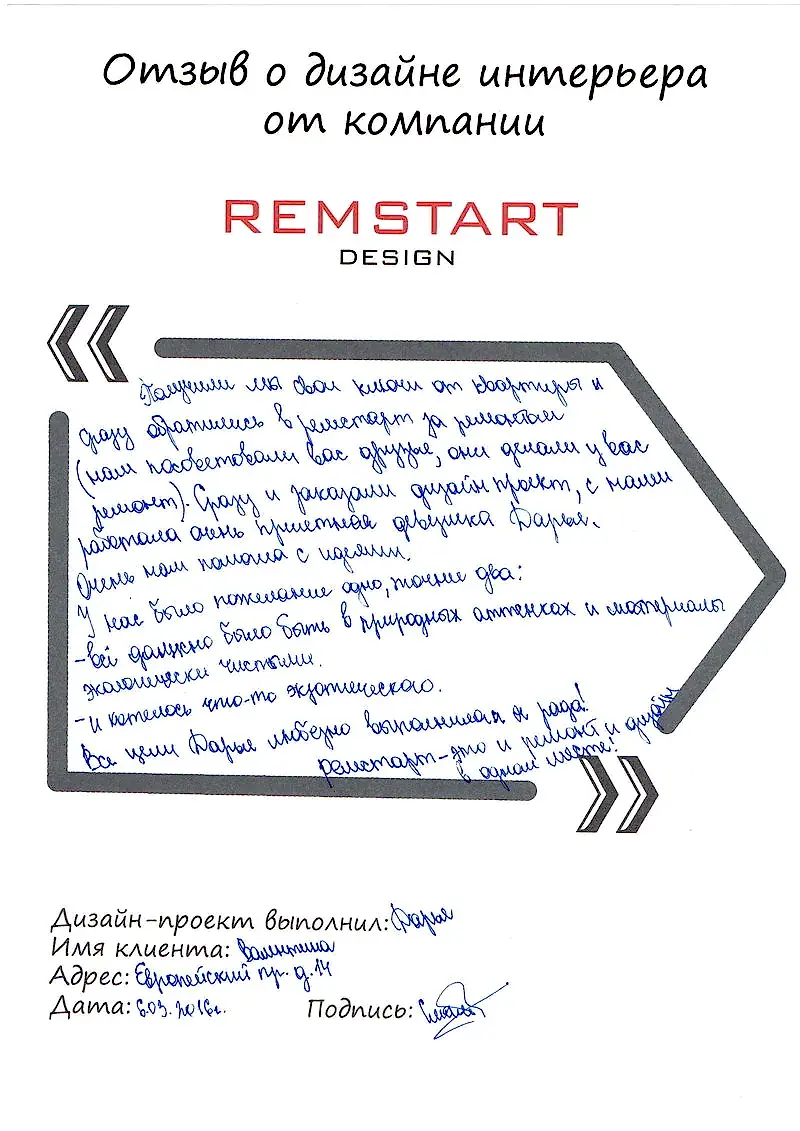 Отзыв о дизайне интерьера
от компании
REMSTART
DESIGN
Получили мы свои ключи от квартиры и
сразу обратились в ремстарт за ремонтом
(нам посоветовали вас друзья, они делали у вас
ремонт). Сразу и заказали дизайн проект, с нами
работала очень приятная девушка Дарья.
Очень нам помогла с идеями.
У нас было пожелание одно, точнее два:
-всё должно было быть в природных оттенках и материалы
экологически чистыми.
-и хотелось что-то экзотического.
Все цели Дарья любезно выполнила я рада!
Ремстарт-это и ремонт и дизайн
в одном месте!
Дизайн-проект выполнил: Дарья
Имя клиента: Валентина
Адрес: Европейский пр. д.14
Дата: 6.03.2016г.
Подпись: